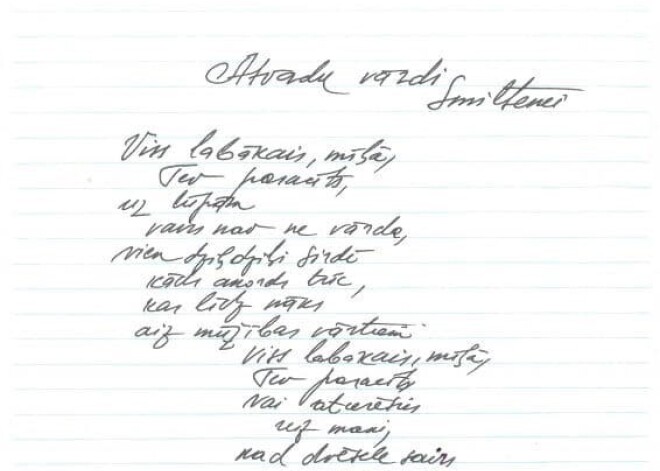 Atvadu vārdi
Smiltenei
Viss labākais, mīļā,
Tev pasacīts,
uz lūpām
vairs nav ne vārda,
vien dziļdziļi sirdī
kāds akords trīc,
kas līdz nāks
aiz mūžības vārtiem
Viss labākais, mīļā,
Tev pasacīts
vai
uz mani,
kad dvēsele